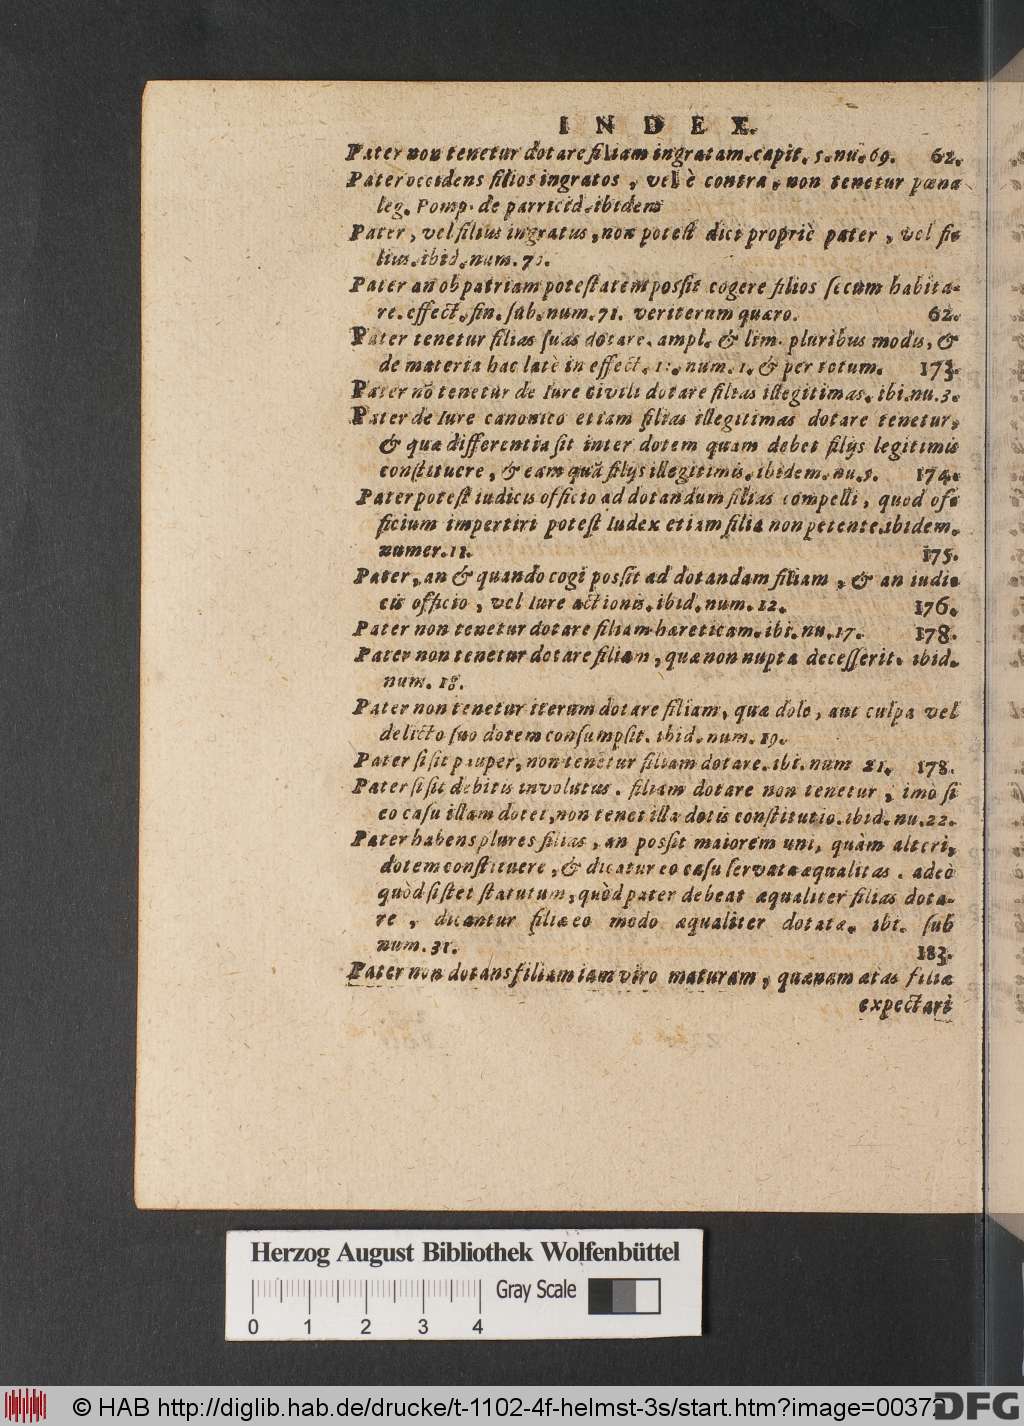 INDEX.
Pater non tenetur dotare filiam ingratam. capit. 5. nu. 69. 62.
Pater occidens filios ingratos, vel è contra, non tenetur pœna
leg. Pomp. de parricid. ibidem
Pater, vel filius ingratus, non potest dici propriè pater, vel fi-
lius. ibid. num. 71.
Pater an ob patriam potestatem possit cogere filios secum habita-
re. effect. fin. sub. num. 71. ver iterum quæro. 62.
Pater tenetur filias suas dotare. ampl. & lim. pluribus modis, &
de materia hac latè in effect. 11. num. 1. & per totum. 173.
Pater nō tenetur de Iure Civili dotare filias illegitimas. ibi. nu. 3.
Pater de Iure canonico etiam filias illegitimas dotare tenetur,
& quæ differentia sit inter dotem quam debet filijs legitimis
constituere, & eam quā filijs illegitimis. ibidem. nu. 5. 174.
Pater potest iudicis officio ad dotandum filias compelli, quod of-
ficium impertiri potest Iudex etiam filia non petente. ibidem.
numer. 11. 175.
Pater, an & quando cogi possit ad dotandam filiam, & an iudi-
cis officio, vel Iure actionis. ibid. num. 12. 176.
Pater non tenetur dotare filiam hæreticam. ibi. nu. 17. 178.
Pater non tenetur dotare filiam, quæ non nupta decesserit. ibid.
num. 18.
Pater non tenetur iterum dotare filiam, quæ dolo, aut culpa vel
delicto suo dotem consumpsit. ibid. num. 19.
Pater si sit pauper, non tenetur filiam dotare. ibi. num 21. 178.
Pater si sit debitis involutus. filiam dotare non tenetur, imò si
eo casu illam dotet, non tenet illa dotis constitutio. ibid. nu. 22.
Pater habens plures filias, an possit maiorem uni, quàm alteri,
dotem constituere, & dicatur eo casu servata æqualitas. adeò
quòd si stet statutum, quòd pater debeat æqualiter filias dota-
re, dicantur filiæ eo modo æqualiter dotatæ. ibi. sub
num. 31. 183.
Pater non dotans filiam iam viro maturam, quænam ætas filiæ
expectari
Herzog August Bibliothek Wolfenbüttel
Gray Scale
0 1 2 3 4
© HAB http://diglib.hab.de/drucke/t-1102-4f-helmst-3s/start.htm?image=00372
DFG